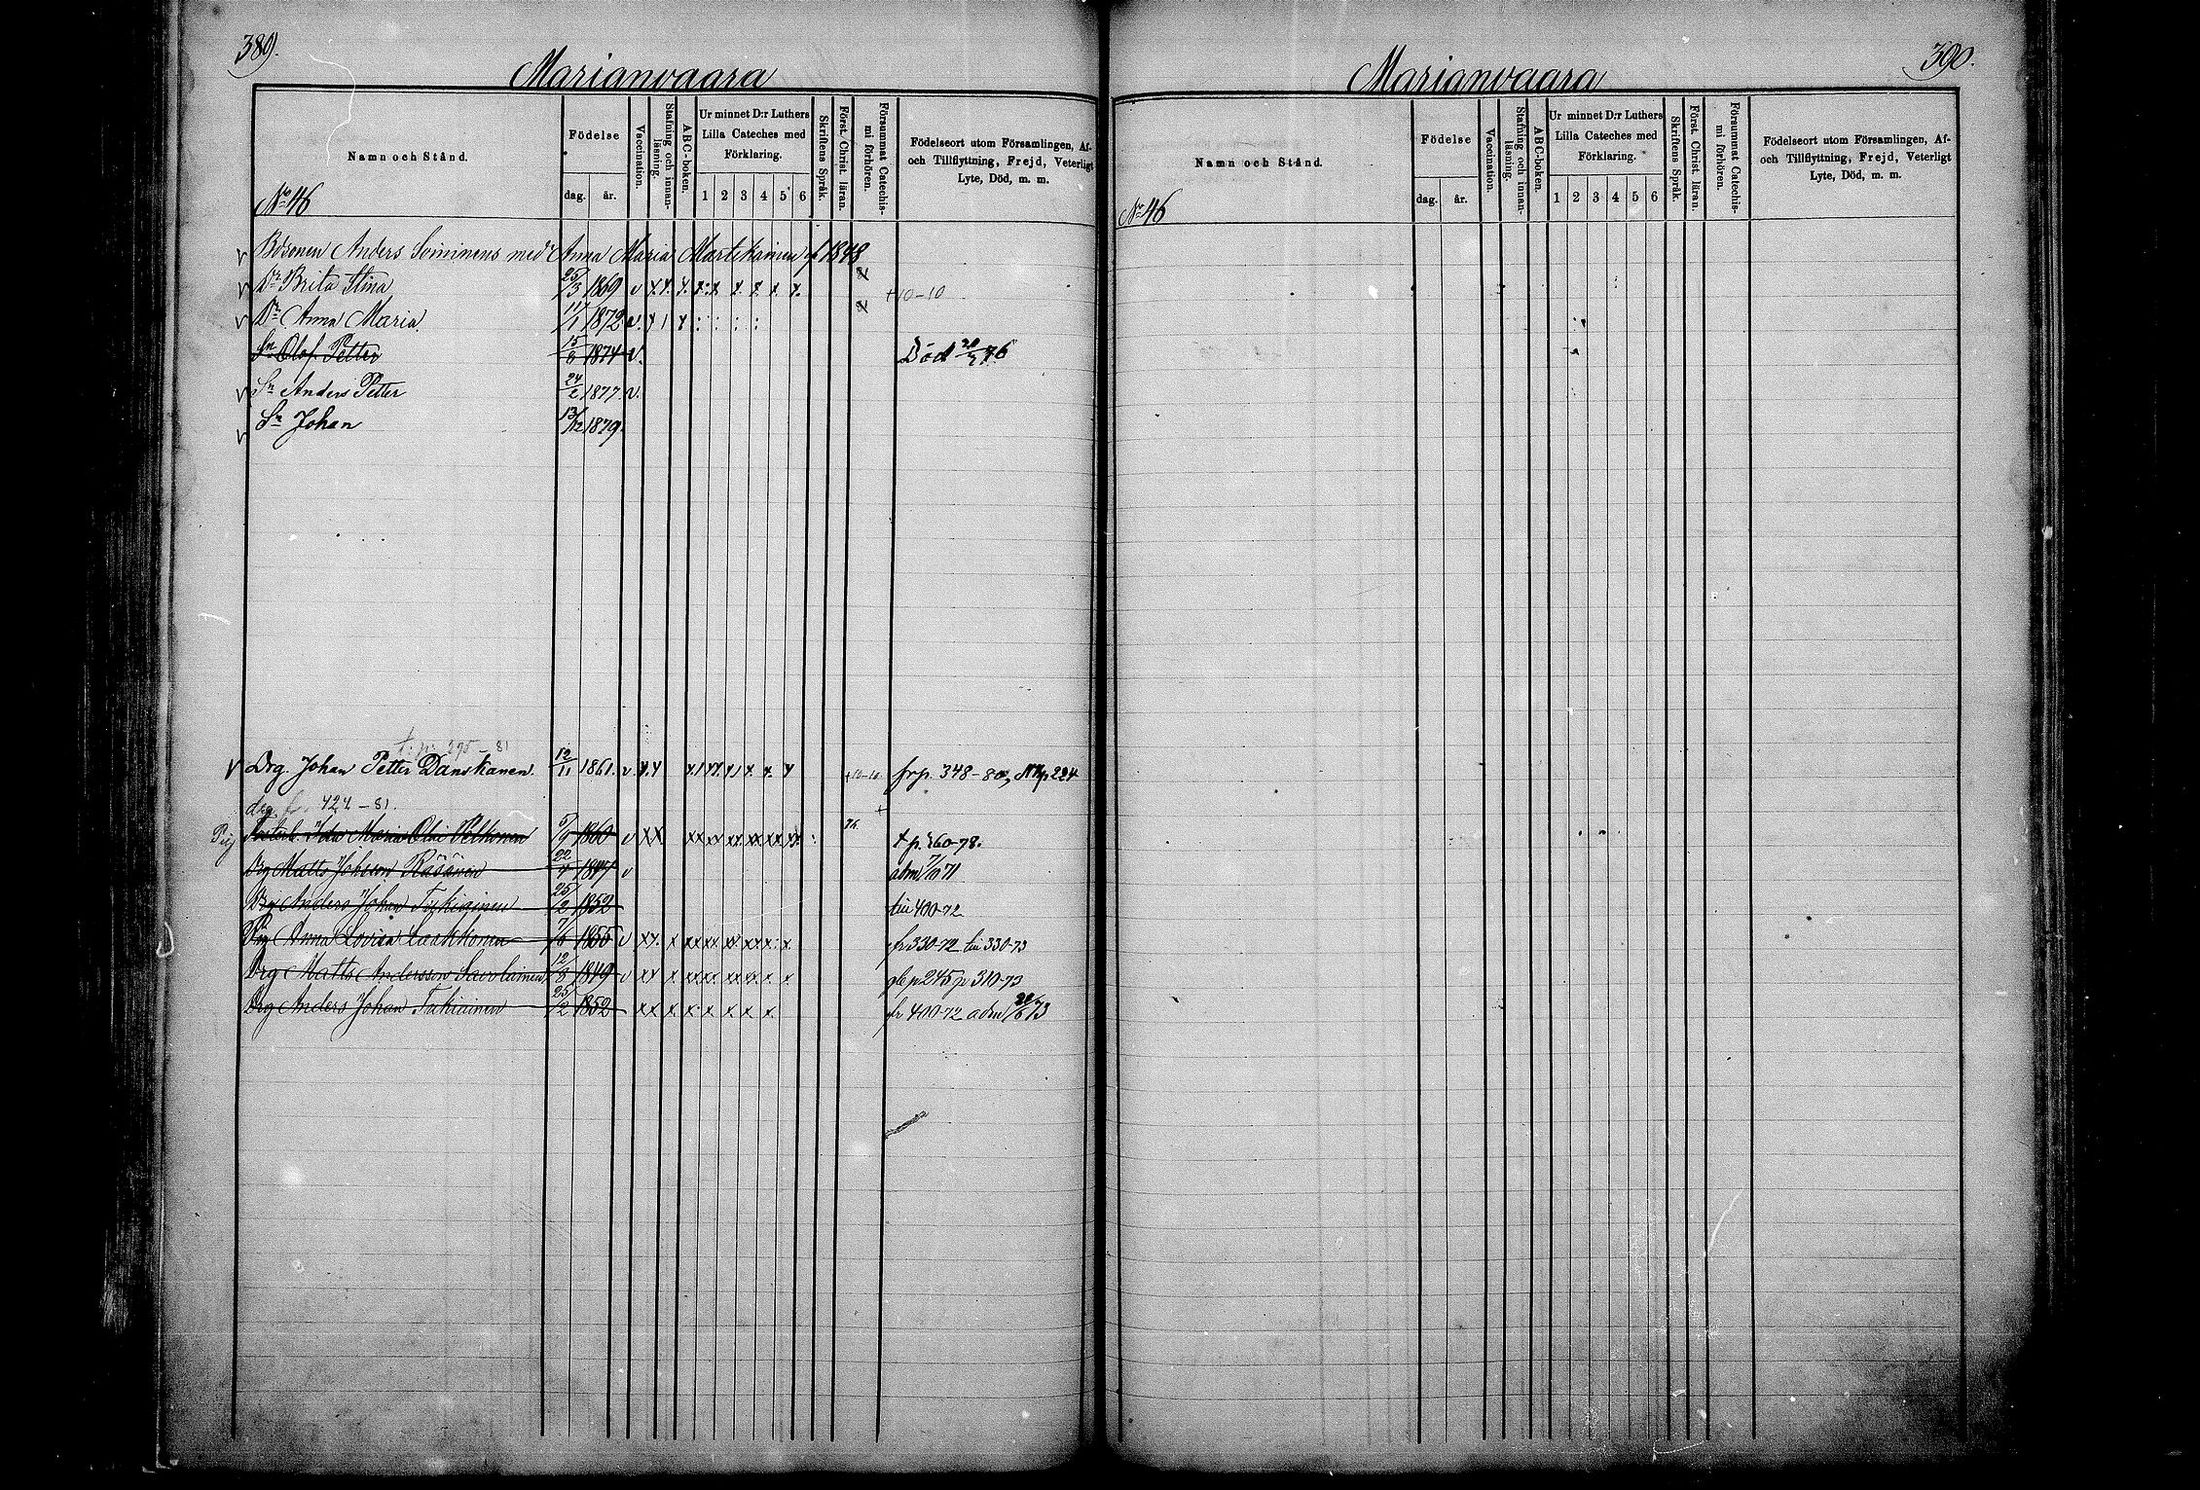 389.
Marianvaara
Namn och Stånd.
Födelse
dag. år.
Vaccination.
Stafning och innan-läsning.
ABC-boken.
Ur minnet D:r Luthers
Lilla Cateches med
Förklaring.
1 2 3 4 5 6
Skriftens Språk.
Först. Christ. läran.
Försummat Catechis-mi förhören.
Födelseort utom Församlingen, Af-
och Tillflyttning, Frejd, Veterligt
Lyte, Död, m. m.
No 46
Anders med Anna Maria Martikainen f 1848
Dr Brita Stina 25/3 1869 v
+10-10
Dr Anna Maria 11/1 1872 v.
Sn Olof Petter 15/6 1874 v. Död 76
Sn Anders Petter 24/2 1877 v.
Sn Johan 13/12 1879.
395-81
Drg. Johan Petter Danskanen. 12/11 1861. v. frp. 348-80,
424-81.
Maria Peltonen 5/9 1860 v 78. + p. 360-78.
Drg Matts Johsson Räsänen 22/4 1847 v adm 7/10 71
Drg Anders Johan Tukiainen 25/2 1852 till 400-72
Pig Anna Lovisa Laakkonen 7/6 1855 v fr 330-72 till 330-73
Drg Matts Andersson Savolainen 12/8 1849 v p 245 p 310-73
Drg Anders Johan Tukiainen 25/2 1852 fr 400-72 adm 28/6 73
390.
Marianvaara
Namn och Stånd.
Födelse
dag. år.
Vaccination.
Stafning och innan-läsning.
ABC-boken.
Ur minnet D:r Luthers
Lilla Cateches med
Förklaring.
1 2 3 4 5 6
Skriftens Språk.
Först. Christ. läran.
Försummat Catechis-mi förhören.
Födelseort utom Församlingen, Af-
och Tillflyttning, Frejd, Veterligt
Lyte, Död, m. m.
No 46